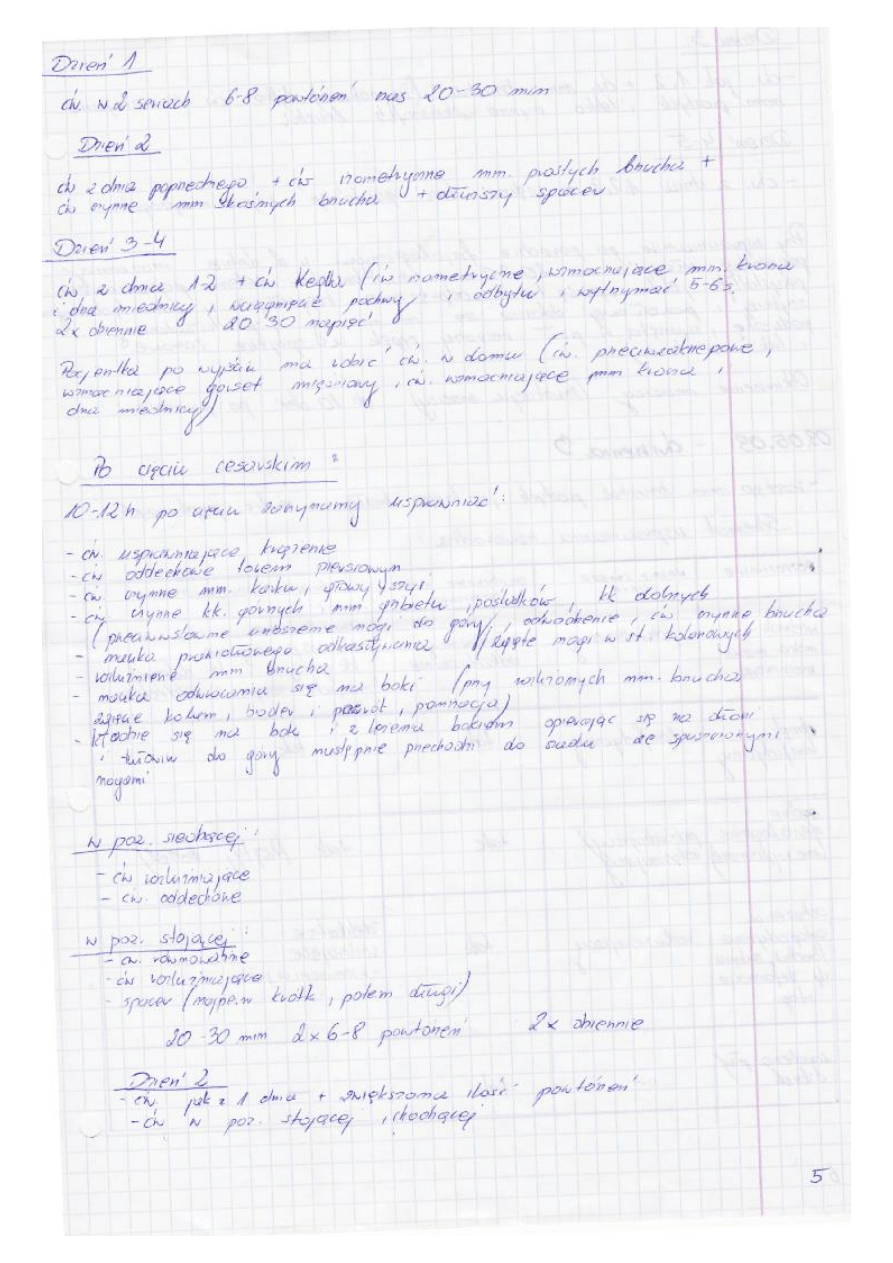 Dzień 1
ćw. w 2 seriach 6-8 powtórzeń nas 20-30 min
Dzień 2
ćw z dnia poprzedniego + ćw izometryczne mm. prostych brzucha +
ćw czynne mm skośnych brzucha + dłuższy spacer
Dzień 3-4
ćw z dnia 1-2 + ćw Kegla (ćw izometryczne, wzmacniające mm. krocza
i dna miednicy, wciągnięcie pochwy i odbytu i wytrzymać 5-6 s.
2x dziennie 20-30 napięć
Pacjentka po wyjściu ma robić ćw. w domu (ćw. przeciwzakrzepowe,
wzmacniające gorset mięśniowy, ćw. wzmacniające mm krocza i
dna miednicy)
Po cięciu cesarskim :
10-12 h po cięciu zaczynamy usprawniać :
- ćw. usprawniające krążenie
- ćw oddechowe torem piersiowym
- ćw czynne mm. karku, głowy i szyi
- ćw czynne kk. górnych i mm grzbietu, pośladków, kk dolnych
(przeciwwskazane unoszenie nogi do góry, odwodzenie, ćw. czynne brzucha
- nauka prawidłowego odkasływania /zgięte nogi w st. kolanowych
- rozluźnienie mm brzucha
- nauka odwracania się na boki (przy rozluźnionych mm. brzucha
zgięcie kolan, bioder i powrót, pronacja)
- kładzie się na bok i z leżenia bokiem opierając się na dłoni
i tułowiu do góry następnie przechodzi do siadu ze spuszczonymi
nogami
w poz. siedzącej :
- ćw rozluźniające
- ćw. oddechowe
w poz. stojącej :
- ćw. równoważne
- ćw rozluźniające
- spacer (najpierw krótki, potem długi)
20-30 min 2x 6-8 powtórzeń 2x dziennie
Dzień 2
- ćw. jak z 1 dnia + zwiększona ilość powtórzeń
- ćw w poz. stojącej, chodzącej
5